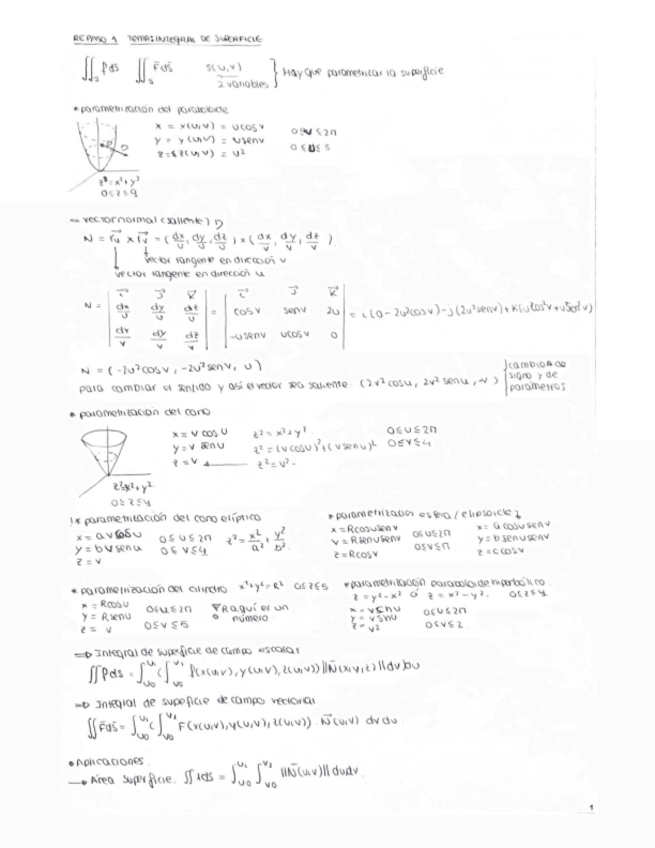 REPASO 1 TEMA: INTEGRAL DE SUPERFICIE
∬_S f ds ∬_S F̄ ds̄ s(u,v) 2 variables } Hay que parametrizar la superficie
* parametrización del paraboloide
x = x(u,v) = u cos v 0≤v≤2π
y = y(u,v) = u sen v 0≤u≤3
z = z(u,v) = u²
z = x²+y²
0≤z≤9
vector normal (saliente)
N = r̄u × r̄v = (dx/u, dy/u, dz/u) × (dx/v, dy/v, dz/v)
vector tangente en dirección v
vector tangente en dirección u
N = | i j k ; dx/u dy/u dz/u ; dx/v dy/v dz/v | = | i j k ; cos v sen v 2u ; -u sen v u cos v 0 | = i(0-2u²cos v) - j(2u²sen v) + k(u cos²v + u sen²v)
N = (-2u²cos v, -2u²sen v, u)
para cambiar el sentido y así el vector sea saliente. (2v²cos u, 2v²sen u, -v) } cambio de signo y de parámetros
* parametrización del cono
x = v cos u z² = x²+y² 0≤u≤2π
y = v sen u z² = (v cos u)²+(v sen u)² 0≤v≤4
z = v z² = v²
z²=x²+y²
0≤z≤4
* parametrización del cono elíptico
x = a v cos u 0≤u≤2π z² = x²/a² + y²/b²
y = b v sen u 0≤v≤4
z = v
* parametrización esfera / elipsoide
x = R cos u sen v 0≤u≤2π x = a cos u sen v
y = R sen u sen v 0≤v≤π y = b sen u sen v
z = R cos v z = c cos v
* parametrización del cilindro x²+y²=R² 0≤z≤5
x = R cos u 0≤u≤2π R aquí es un
y = R sen u número
z = v 0≤v≤5
* parametrización paraboloide hiperbólico
z = y²-x² ó z = x²-y². 0≤z≤4
0≤u≤2π
z = v² 0≤v≤2
⇒ Integral de superficie de campo escalar
∬ f ds = ∫_{u0}^{u1} (∫_{v0}^{v1} f(x(u,v), y(u,v), z(u,v)) ||N̄(x,y,z)|| dv) du
⇒ Integral de superficie de campo vectorial
∬ F̄ ds̄ = ∫_{u0}^{u1} (∫_{v0}^{v1} F(x(u,v), y(u,v), z(u,v)) · N̄(u,v) dv du
• Aplicaciones.
→ Área superficie. ∬ 1 ds = ∫_{u0}^{u1} ∫_{v0}^{v1} ||N̄(u,v)|| du dv.
1